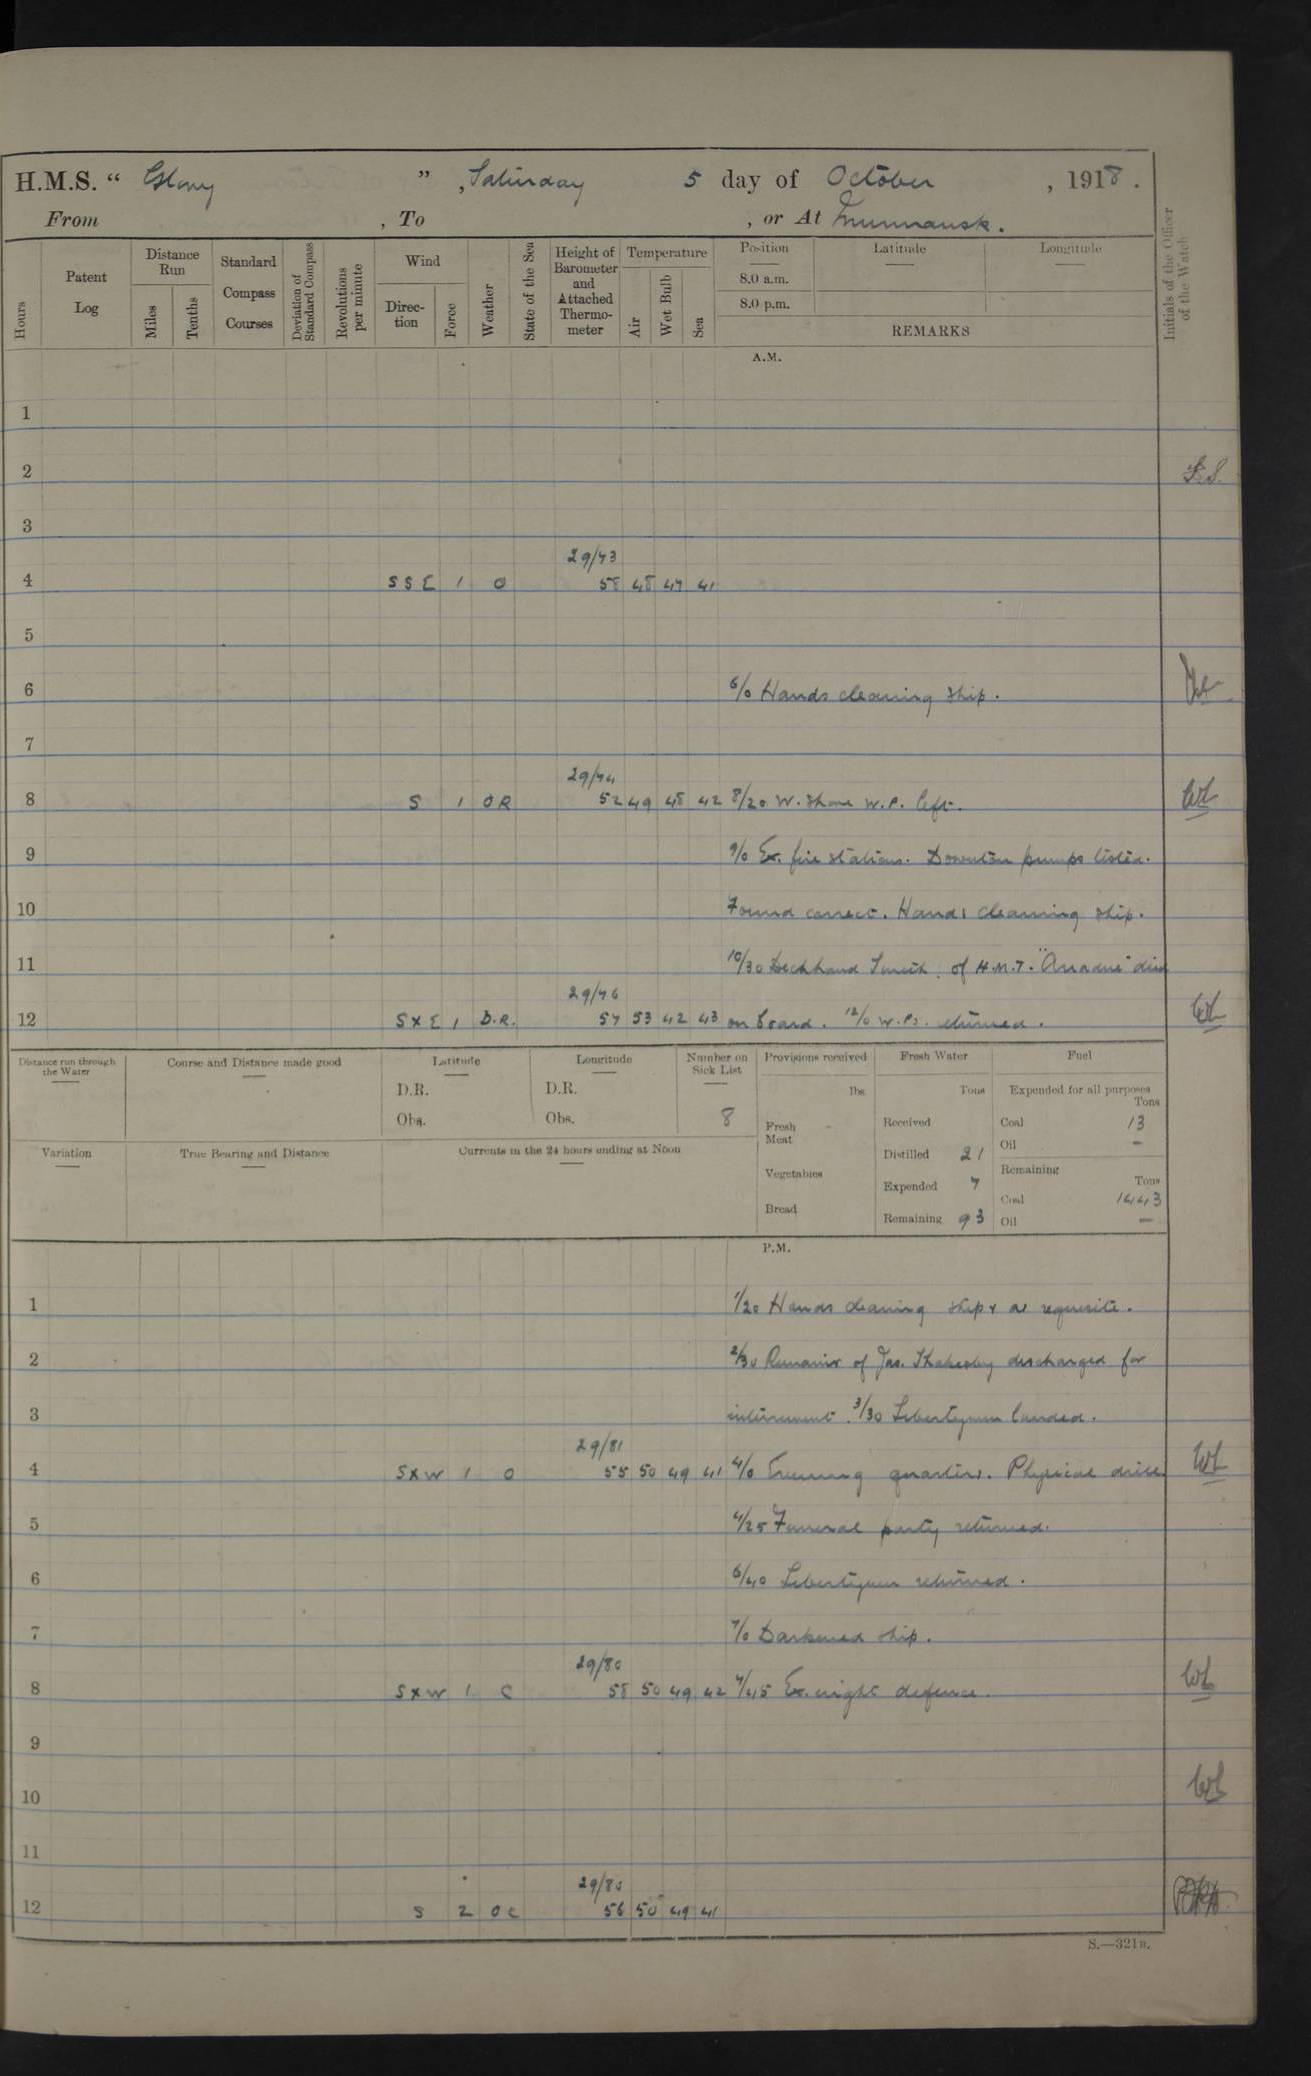 H.M.S. “ Glory ” , Saturday 5 day of October , 1918 .
From , To , or At Murmansk.
Initials of the Officer of the Watch
Hours
Patent Log
Distance Run
Miles
Tenths
Standard Compass Courses
Deviation of Standard Compass
Revolutions per minute
Wind
Direction
Force
Weather
State of the Sea
Height of Barometer and Attached Thermometer
Temperature
Air
Wet Bulb
Sea
Position
Latitude
Longitude
8.0 a.m.
8.0 p.m.
REMARKS
A.M.
1
2
3
29/73
4 SSE 1 O 58 48 47 41
5
6 6/0 Hands cleaning ship.
7
29/74
8 S 1 OR 52 49 48 42 8/20 W. Shore W.P. left.
9 9/0 Ex. fire stations. Downton pumps tested.
10 Found correct. Hands cleaning ship.
11 10/30 Deckhand Smith of H.M.T. "Ariadne" died
29/76
12 SXE 1 D.R. 57 53 42 43 on board. 12/0 W.Ps. returned.
Distance run through the Water
Course and Distance made good
Latitude
D.R.
Obs.
Longitude
D.R.
Obs.
Number on Sick List
8
Provisions received
lbs
Fresh Meat -
Vegetables
Bread
Fresh Water
Tons
Received
Distilled 21
Expended 7
Remaining 93
Fuel
Expended for all purposes
Tons
Coal 13
Oil –
Remaining
Tons
Coal 1443
Oil –
Variation
True Bearing and Distance
Currents in the 24 hours ending at Noon
P.M.
1 1/20 Hands cleaning ship & as requisite.
2 2/30 Remains of Jas. discharged for
3 interment. 3/30 Libertymen landed.
29/81
4 SXW 1 O 55 50 49 41 4/0 Evening quarters. Physical drill.
5 4/25 Funeral party returned.
6 6/40 Libertymen returned.
7 7/0 Darkened ship.
29/80
8 SXW 1 C 58 50 49 42 7/45 Ex. night defence.
9
10
11
29/80
12 S 2 OC 56 50 49 41
S.—321B.